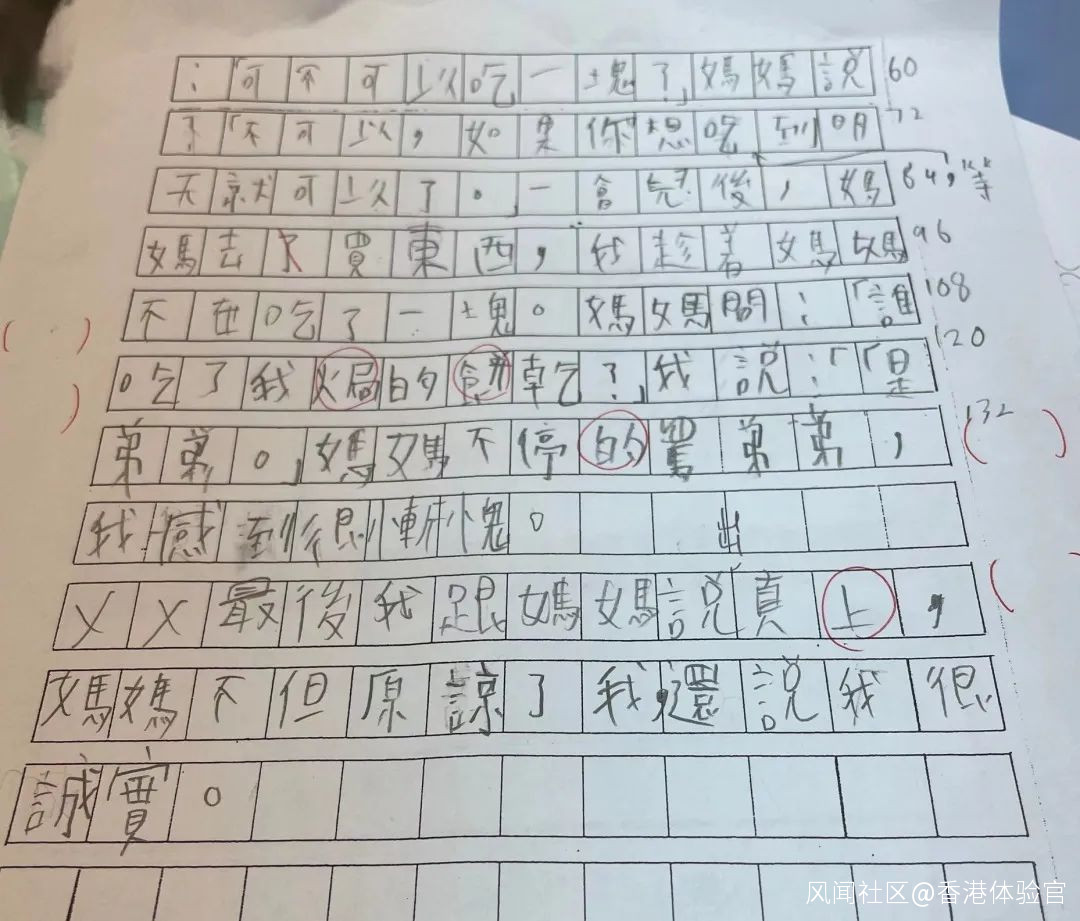 ：「可不可以吃一塊？」媽媽說 60
：「不可以，如果你想吃到明 72
天就可以了。」一會兒後，媽 84，等
媽去買東西，我趁着媽媽 96
不在吃了一塊。媽媽問：「誰 108
吃了我焗的餅乾？」我說：「是 120
弟弟。」媽媽不停的罵弟弟， 132
我感到很慚愧。 出
最後我跟媽媽說真上，
媽媽不但原諒了我，還說我很
誠實。
风闻社区@香港体验官